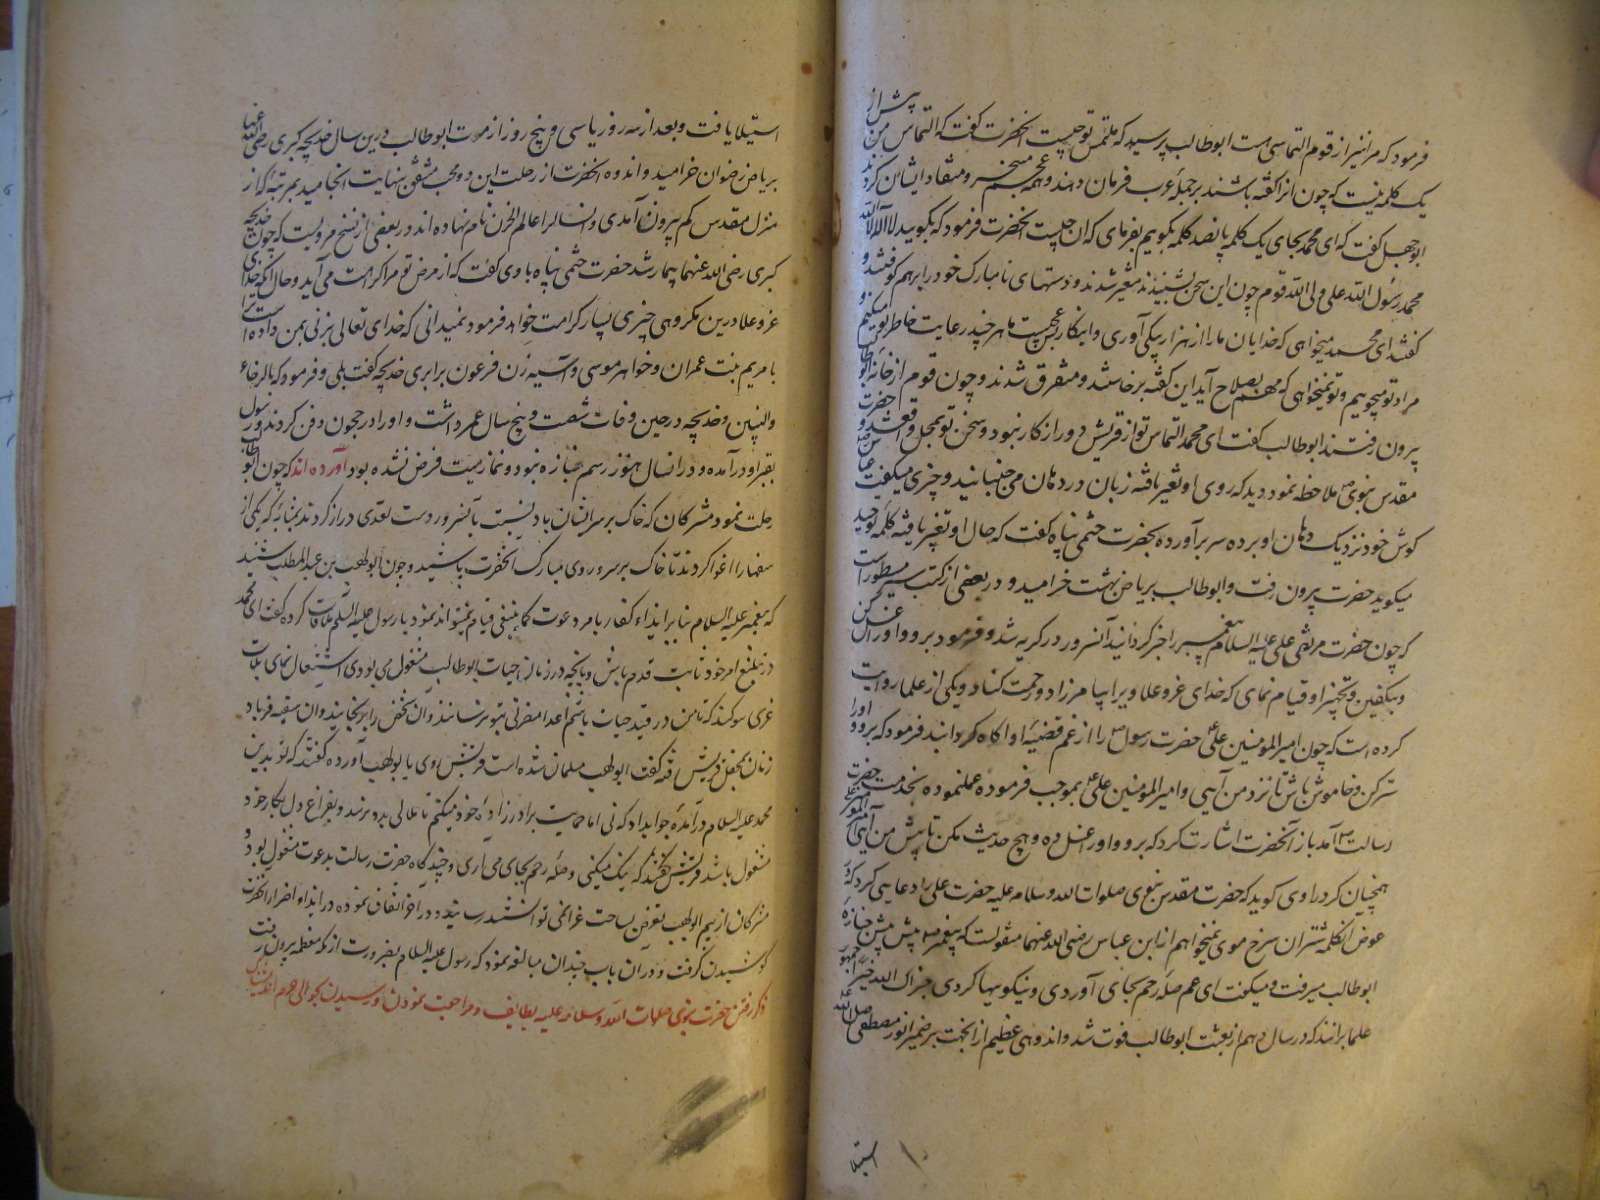 فرمود که مرا نیز از قوم التماسی است ابوطالب پرسید که ملتمس تو چیست آنحضرت گفت که التماس من پیش از
یک کلمه نیست که چون آنرا گفته باشند بر جمله عرب فرمان دهند و همه عجم مسخر و منقاد ایشان گردند
ابوجهل گفت که ای محمد بجای یک کلمه پانصد کلمه بگوییم بفرمای که آن چیست آنحضرت فرمود که بگویید لا اله الا الله
محمد رسول الله علی ولی الله قوم چون این سخن بشنیدند متغیر شدند و دستهای نامبارک خود را برهم کوفتند و
گفتند ای محمد میخواهی که خدایان ما را از هزار بیکی آوری و اینکار عجیبست ما هر چند رعایت خاطر تو میکنیم و
مراد تو میجوییم و تو نمیخواهی که مهم بصلاح آید این گفته برخاستند و متفرق شدند و چون قوم از خانه ابوطالب
بیرون رفتند ابوطالب گفت ای محمد التماس تو از قریش دور از کار نبود و سخن تو بمحل واقع شد و حضرت
مقدس نبوی ملاحظه نمود دید که روی او تغیر یافته زبان در دهان می جنبانید و چیزی میگفت عباس
گوش خود نزدیک دهان او برده سر برآورده بحضرت ختمی پناه گفت که حال او تغیر یافته کلمه توحید
میگوید حضرت بیرون رفت و ابوطالب بریاض بهشت خرامید و در بعضی از کتب سیر مسطور است
که چون حضرت مرتضی علی علیه السلام پیغمبر را خبر گردانید آنسرور در گریه شد و فرمود برو و او را غسل کن
و بتکفین و تجهیز او قیام نمای که خدای عزوعلا ویرا بیامرزاد و رحمت کناد و یکی از علما روایت
کرده است که چون امیرالمومنین علی حضرت رسول را از غم قضیه او آگاه گردانید فرمود که برو و او را
ستر کن و خاموش باش تا نزد من آیی و امیرالمومنین علی بموجب فرموده عملنموده بخدمت حضرت
رسالت آمد باز آنحضرت اشارت کرد که برو و او را غسل ده و هیچ حدیث مکن تا پیش من آیی امیر المومنین
همچنان کرد راوی گوید که حضرت مقدس نبوی صلوات الله و سلامه علیه حضرت علی را دعایی کرد که در
عوض آن کلمه شتران سرخ موی نمیخواهم از ابن عباس رضی الله عنهما منقولست که پیغمبر پیش پیش جنازه
ابوطالب میرفت و میگفت ای عم صله رحم بجای آوردی و نیکوییها کردی جزاک الله خیرا جمهور
علما برانند که در سال دهم از بعثت ابوطالب فوت شد و اندوهی عظیم از آنجهت بر ضمیر انور مصطفی صلی الله علیه
استیلا
استیلا یافت و بعد از سه روز یا سی و پنج روز از موت ابوطالب درین سال خدیجه کبری رضی الله عنها
بریاض رضوان خرامید و اندوه آنحضرت از رحلت این دو محب مشفق بنهایت انجامید بمرتبه که از
منزل مقدس کم بیرون آمدی و انسال را عام الحزن نام نهاده اند در بعضی از نسخ مرویست که چون خدیجه
کبری رضی الله عنها بیمار شد حضرت ختمی پناه با وی گفت که از مرض تو مرا کراهت می آید و حال آنکه خدای
عزوعلا درین مکروهی چیزی بسیار کرامت خواهد فرمود نمیدانی که خدای تعالی بزنی بمن داده است ترا
با مریم بنت عمران و خواهر موسی و آسیه زن فرعون برابری خدیجه گفت بلی و فرمود که بالرفاء
والبنین و خدیجه در حین وفات شصت و پنج سال عمر داشت و او را در حجون دفن کردند و رسول
بقبر او درآمده و در انسال هنوز رسم جنازه نبود و نماز میت فرض نشده بود آورده اند که چون ابوطالب
رحلت نمود مشرکان که خاک بر سر ایشان باد نسبت با آنسرور دست تعدی دراز کردند بمثابه که یکی از
سفها را اغوا کردند تا خاک بر سر و روی مبارک آنحضرت پاشید و چون ابولهب بن عبدالمطلب شنید
که پیغمبر علیه السلام بنابر ایذاء کفار بامر دعوت کما ینبغی قیام نمیتواند نمود با رسول علیه السلام ملاقات کرده گفت ای محمد
در تبلیغ امر خود ثابت قدم باش و بآنچه در زمان حیات ابوطالب مشغول می بودی اشتغال نمای بلات
عزی سوگند که تا من در قید حیات باشم اعدا مضرتی بتو نرسانند و آن شخص را برنجانید و آن سفیه فریاد
زنان بمحفل قریش رفته گفت ابولهب مسلمان شده است قریش روی بابولهب آورده گفتند که تو بدین
محمد علیه السلام درآمده جواب داد که نی اما حمایت برادرزاده خود میکنم تا ملالی بدو نرسد و بفراغ دل بکار خود
مشغول باشد قریش گفتند که نیک میکنی و صله رحم بجای می آری و چند گاه حضرت رسالت بدعوت مشغول بود و
مشرکان از بیم ابولهب تعرض بساحت عز او نمی توانستند رسانید و در آخر اتفاق نموده در ایذاء و اضرار آنحضرت
کوشیدن گرفت و در آن باب چندان مبالغه نمود که رسول علیه السلام بضرورت از مکه معظمه بیرون رفت
ذکر رفتن حضرت نبوی صلوات الله و سلامه علیه بطایف و مراجعت نمودن و رسیدن بحوالی حرم